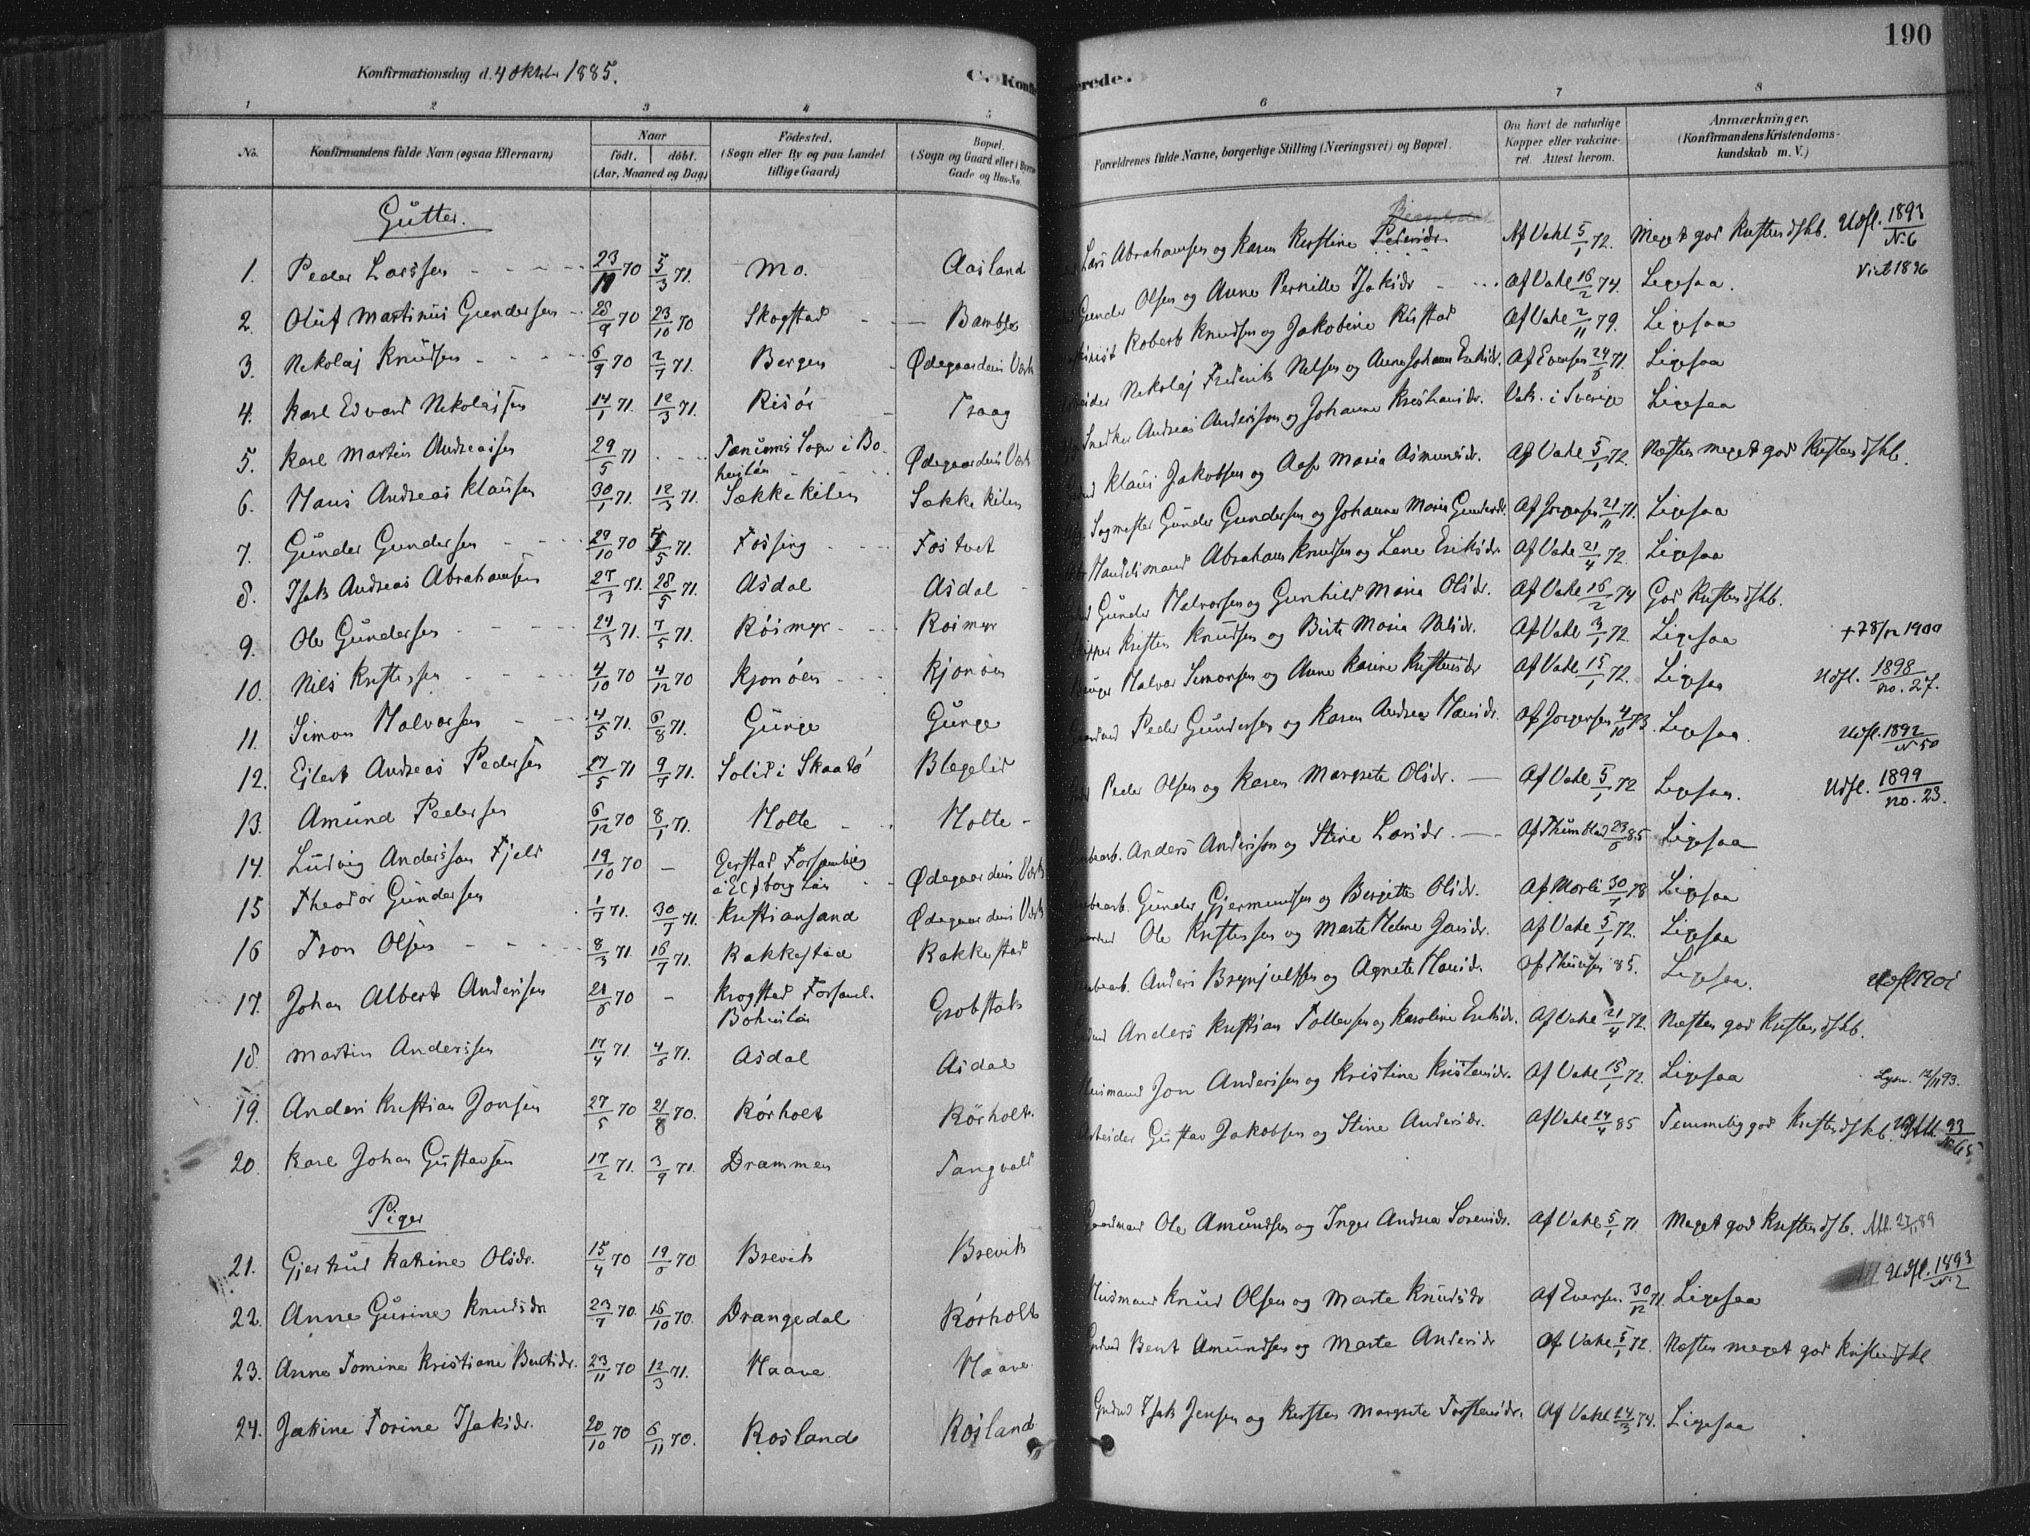 190
Konfirmationsdag d. 4 Oktober 1885.
C. Konfirmerede.
1 2 3 4 5 6 7 8
No. Konfirmandens fulde Navn (ogsaa Efternavn) Naar født. døbt. (Aar, Maaned og Dag) Födested. (Sogn eller By og paa Landet tillige Gaard) Bopæl. (Sogn og Gaard eller i Gade og Hus-No. Forældrenes fulde Navne, borgerlige Stilling (Næringsvei) og Bopæl. Om havt de naturlige Kopper eller vaccineret. Attest herom. Anmærkninger. (Konfirmandens Kristendomskundskab m. V.)
Gutter.
1. Peder Larssen 23/11 70 5/3 71. Mo. Aasland Lars Abrahamsen og Karen Kirstine Pedersdr. Af Vahl 5/1 72. Meget god Kristendskb. Udfl. 1893 N. 6
2. Oluf Martinius Gundersen 28/9 70 23/10 70 Skogstad Bamble Gunder Olsen og Anne Pernille Isaksdr Af Vahl 16/2 74. Ligesaa. Viet 1896
3. Nikolaj Knudsen 6/9 70 2/7 71. Bergen Ødegaardens Værk Robert Knudsen og Jakobine Rustad Af Vahl 2/11 79. Ligesaa
4. Karl Edvard Nikolaisen 14/1 71. 12/3 71. Risör Traag Nikolaj Frederik Nilsen og Anne Johanne Eriksdr. Af Evensen 24/8 71. Ligesaa
5. Karl Martin Andreassen 29/5 71 Tanums Sogn i Bohuslän Ødegaardens Værk Snedker Andreas Andersson og Johanne Kristiansdr. Vak. i Sverige Ligesaa
6. Hans Andreas Klausen 30/1 71. 12/3 71. Sækkekilen Sækkekilen Klaus Jakobsen og Aase Maria Asmundsdr. Af Vahl 5/1 72. Næsten meget god Kristendskb.
7. Gunder Gundersen 29/10 70 5/5 71. Fossing Fostvet Sagmester Gunder Gundersen og Johanne Maria Gundersdr. Af Jorgensen 21/11 71. Ligesaa
8. Isak Andreas Abrahamsen 27/3 71. 28/5 71. Asdal Asdal Handelsmand Abraham Knudsen og Lene Eriksdr. Af Vahl 21/4 72. Ligesaa
9. Ole Gundersen 24/3 71. 7/5 71. Röimyr Roimyr Gunder Halvorsen og Gunhild Maria Olsdr. Af Vahl 16/2 74 God Kristendskb.
10. Nils Kristensen 4/10 70 4/12 70 Kjonöen Kjonöen Kristen Knudsen og Birte Maria Nilsdr. Af Vahl 3/1 72. Ligesaa + 28/12 1900
11. Simon Halvorsen 4/5 71. 6/8 71. Gunge Gunge Halvor Simonsen og Anne Karine Kristensdr Af Vahl 15/1 72. Ligesaa Udfl. 1898 no. 27.
12. Ejlert Andreas Pedersen 27/5 71 9/7 71. Solid i Skaatö Blegelid Peder Gundersen og Karen Andrea Hansdr. Af Jorgensen 4/10 73. Ligesaa. Udfl. 1892 N 50
13. Amund Pedersen 6/12 70 8/1 71. Holte Holte Peder Olsen og Karen Margrete Olsdr. Af Vahl 5/1 72 Ligesaa. Udfl. 1899 no. 23.
14. Ludvig Anderssen Fjeld 19/10 70 Ødegaardens Værk Anders Andersson og Stine Larsdr. 85 Ligesaa
15 Theodor Gundersen 1/7 71. 30/7 71. Kristiansand Ødegaardens Værk Gunder Gjermundsen og Bergitte Olsdr. Af Morli 30/1 78 Ligesaa
16 Tron Olsen 8/3 71. 16/7 71. Rakkestad Rakkestad Ole Kristensen og Marte Helene Jensdr. Af Vahl 5/1 72. Ligesaa
17. Johan Albert Andersen 21/8 70 Krogstad Forsaml. Bohuslän Grobstok Anders Brynjulfsen og Agnete Hansdr. 85. Ligesaa. Udfl 1901
18. Martin Anderssen 17/4 71. 4/6 71. Asdal Asdal Anders Kristian Tollevsen og Karoline Eriksdr. Af Vahl 21/4 72. Næsten god Kristendskb.
19. Anders Kristian Jonsen 27/5 70 21/8 70. Rörholt Rörholt. Husmand Jon Anderssen og Kristine Kristensdr. Af Vahl 15/1 72. Ligesaa Lysn. 12/11 93.
20. Karl Johan Gustavsen 17/2 71. 3/9 71. Drammen Tangvald Arbeider Gustav Jakobsen og Stine Andersdr. Af Vahl 24/4 85 Temmelig god Kristendskb. 93 N. 65
Piger
21. Gjertrud Katrine Olsdr. 15/4 70 19/6 70 Brevik Brevik Gaardmand Ole Amundsen og Inger Andrea Sorensdr. Af Vahl 5/1 71 Meget god Kristendskb. Att. 27/11 89
22. Anne Gurine Knudsdr 23/7 70. 16/10 70. Drangedal Rörholt Husmand Knud Olsen og Marte Knudsdr Af Eversen 30/12 71. Ligesaa Udfl. 1893 N. 2
23. Anne Tomine Kristiane Bentsdr. 23/11 70 12/3 71. Haave Haave Bent Amundsen og Marte Andersdr Af Vahl 5/1 72. Næsten meget god Kristendskb
24. Jakine Torine Isaksdr. 20/10 70 6/11 70. Rosland Rosland Isak Jensen og Kirsten Margrete Torstensdr. Af Vahl 24/3 74. Ligesaa